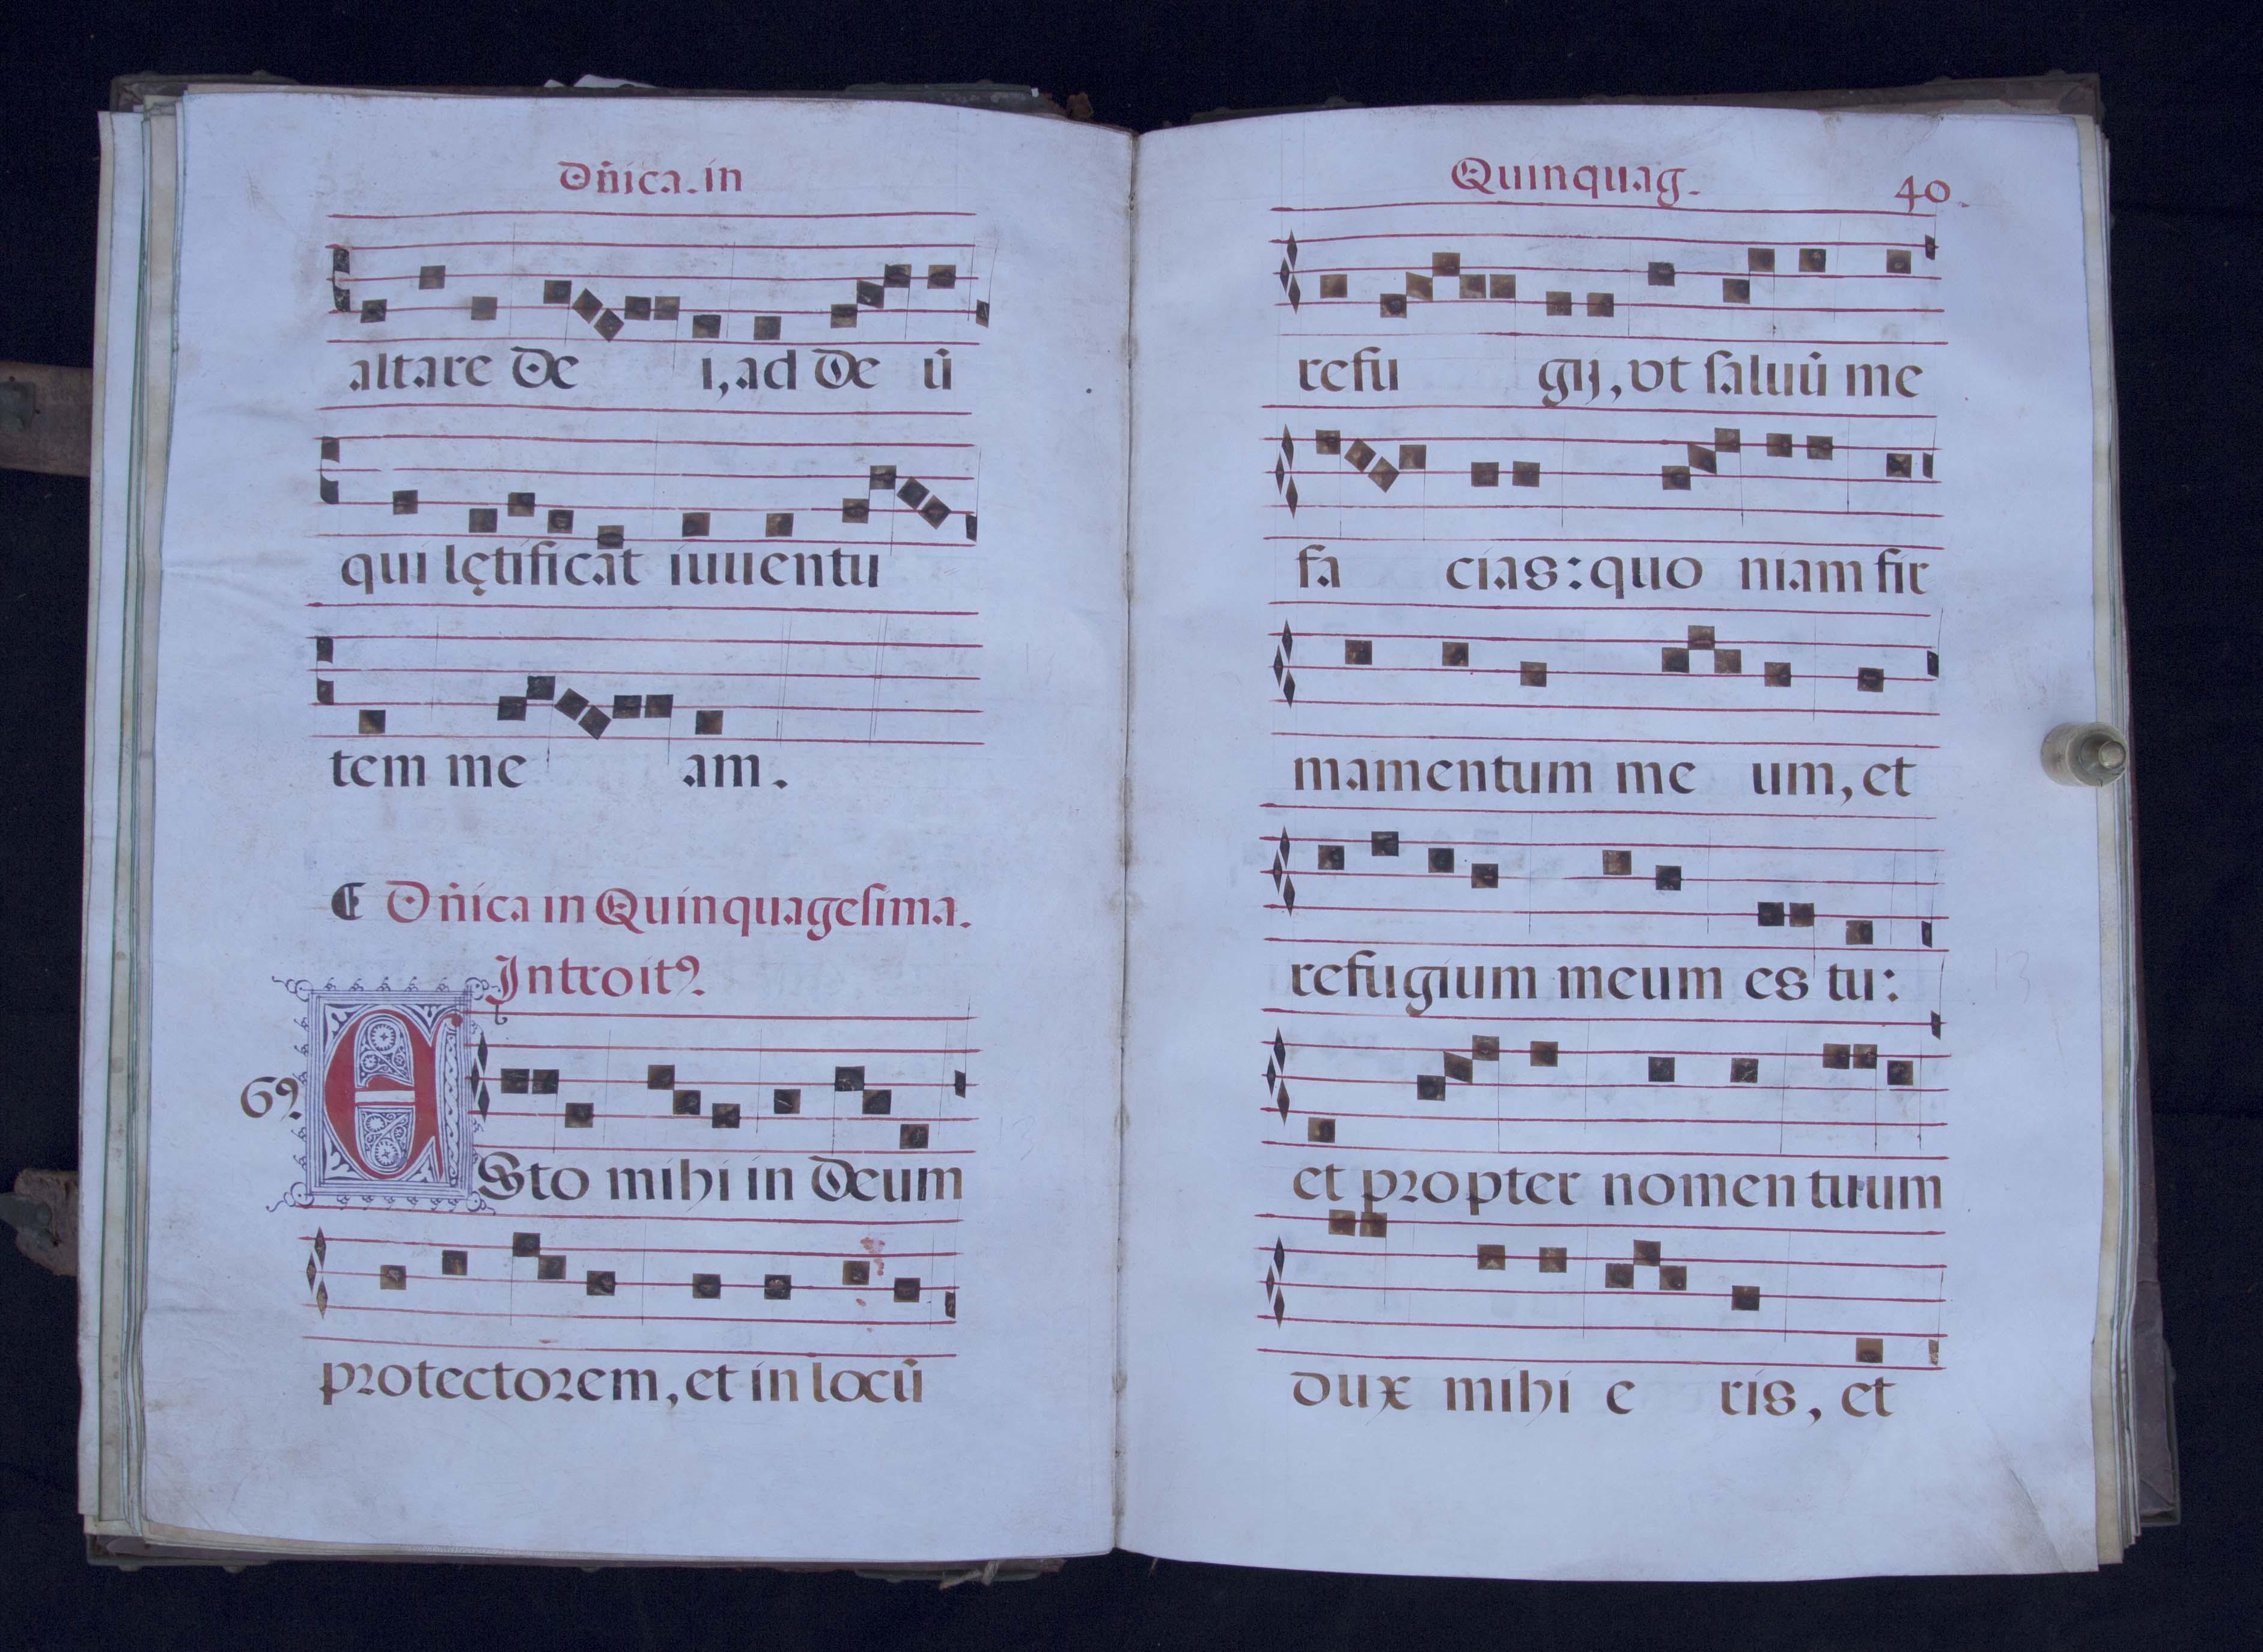 Dñica. in
altare De i, ad De ũ
qui lętificat iuuentu
tem me am.
¶ Dñica in Quinquageſima.
Introitꝰ.
6ꝰ.
ESto mihi in Deum
protectorem, et in locũ
Quinquag. 40.
refu gij, vt ſaluũ me
fa cias: quo niam fir
mamentum me um, et
refugium meum es tu:
et propter nomen tuum
dux mihi e ris, et